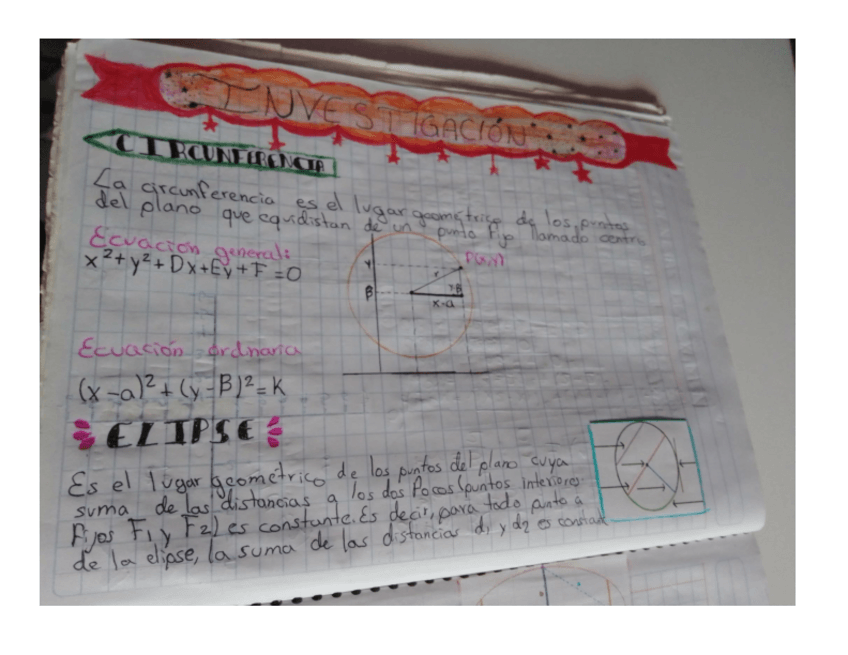 INVESTIGACIÓN
CIRCUNFERENCIA
La circunferencia es el lugar geométrico de los puntos
del plano que equidistan de un punto fijo llamado centro
Ecuación general:
x²+y²+Dx+Ey+F=0
P(x,y)
Y
r
β
x-a
Ecuación ordinaria
(x-a)²+(y-β)²=K
ELIPSE
Es el lugar geométrico de los puntos del plano cuya
suma de las distancias a los dos Focos (puntos interiores
Fijos F1 y F2) es constante. Es decir, para todo punto a
de la elipse, la suma de las distancias d1 y d2 es